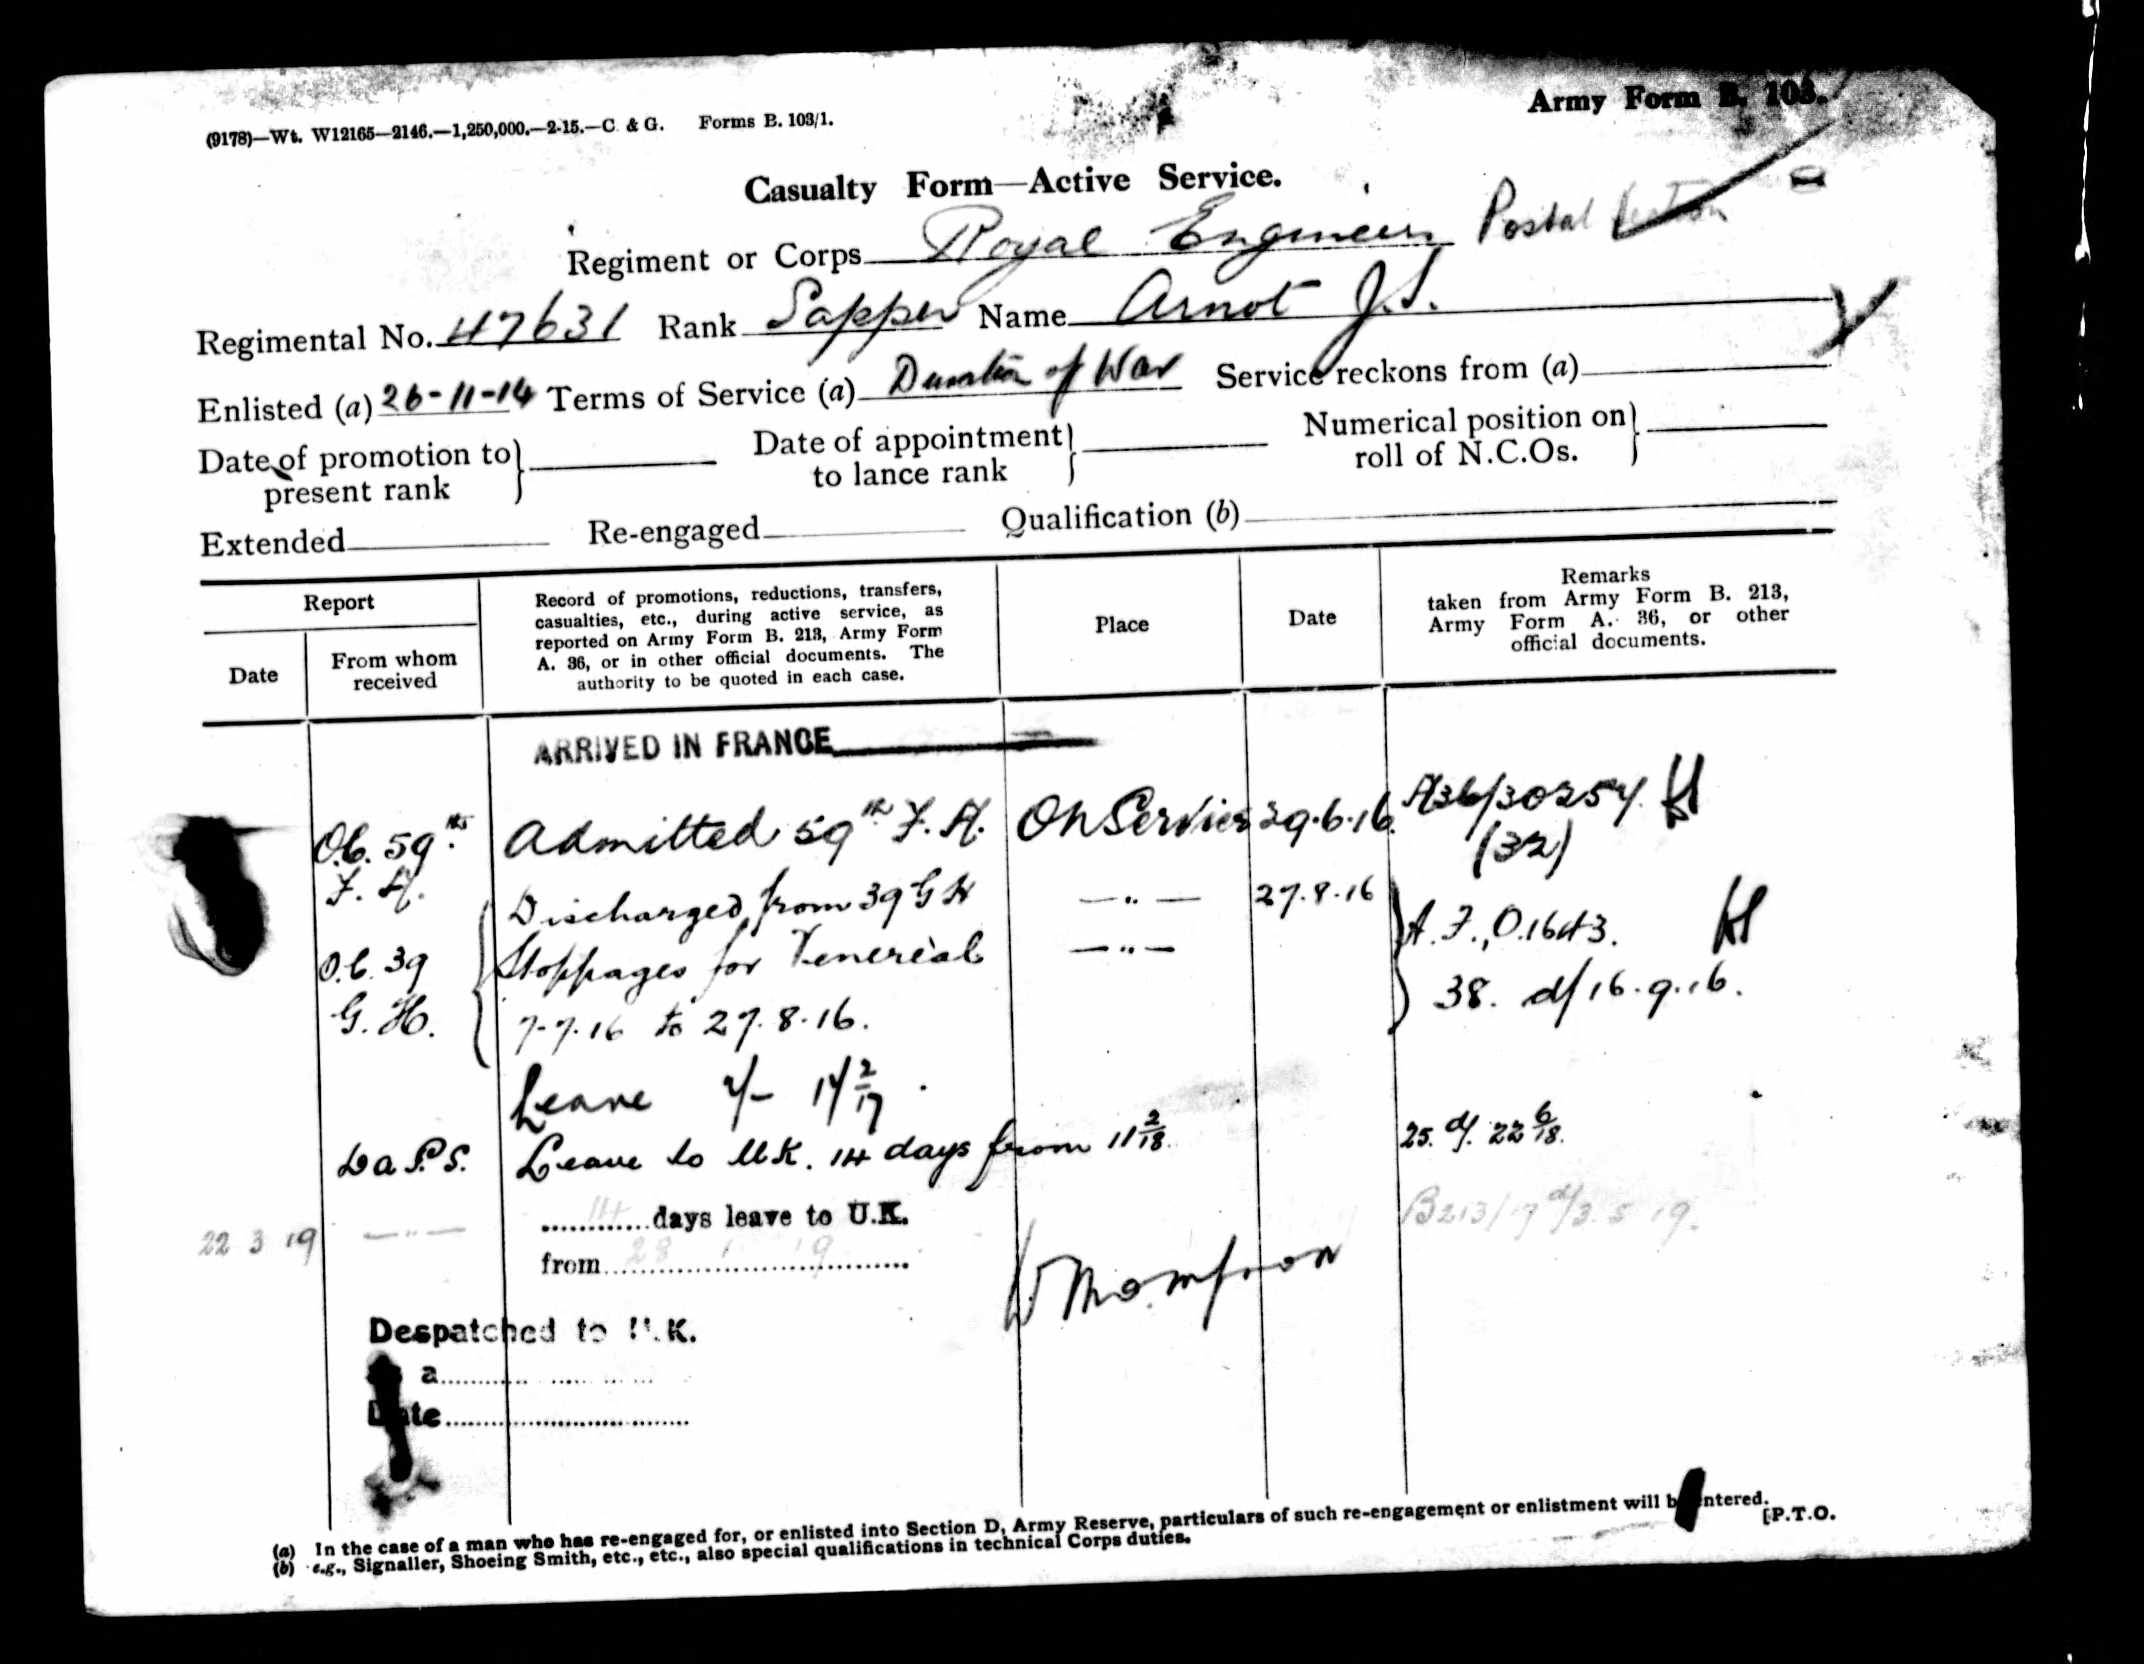 Army Form B. 103.
(9178)—Wt. W12165—2146.—1,250,000.—2-15.—C. & G. Forms B. 103/1.
Casualty Form—Active Service.
Regiment or Corps Royal Engineers Postal Section
Regimental No. 47631 Rank Sapper Name Arnot J.S.
Enlisted (a) 26-11-14 Terms of Service (a) Duration of War Service reckons from (a)
Date of promotion to present rank } Date of appointment to lance rank } Numerical position on roll of N.C.Os. }
Extended Re-engaged Qualification (b)
Report
Date
From whom received
Record of promotions, reductions, transfers,
casualties, etc., during active service, as
reported on Army Form B. 213, Army Form
A. 36, or in other official documents. The
authority to be quoted in each case.
Place
Date
Remarks
taken from Army Form B. 213,
Army Form A. 36, or other
official documents.
ARRIVED IN FRANCE
O.C. 59th F. A. Admitted 59th F. A. On Service 29.6.16. A36/30254
(32)
Discharged from 39 G H —"— 27.8.16
O.C. 39 G. H. Stoppages for Venereal —"— A.F.,O.1643.
7.7.16 to 27.8.16. 38. d/16.9.16.
Leave
D a P.S. Leave to U.K. 14 days from 11 2/18. 25. d/. 22 6/18.
22 3 19 —"— 14 days leave to U.K. B213/17 d/3.5.19.
from 28 1 19
W Thompson
Despatched to U.K.
a
Date
(a) In the case of a man who has re-engaged for, or enlisted into Section D, Army Reserve, particulars of such re-engagement or enlistment will be entered.
(b) e.g., Signaller, Shoeing Smith, etc., etc., also special qualifications in technical Corps duties.
[P.T.O.